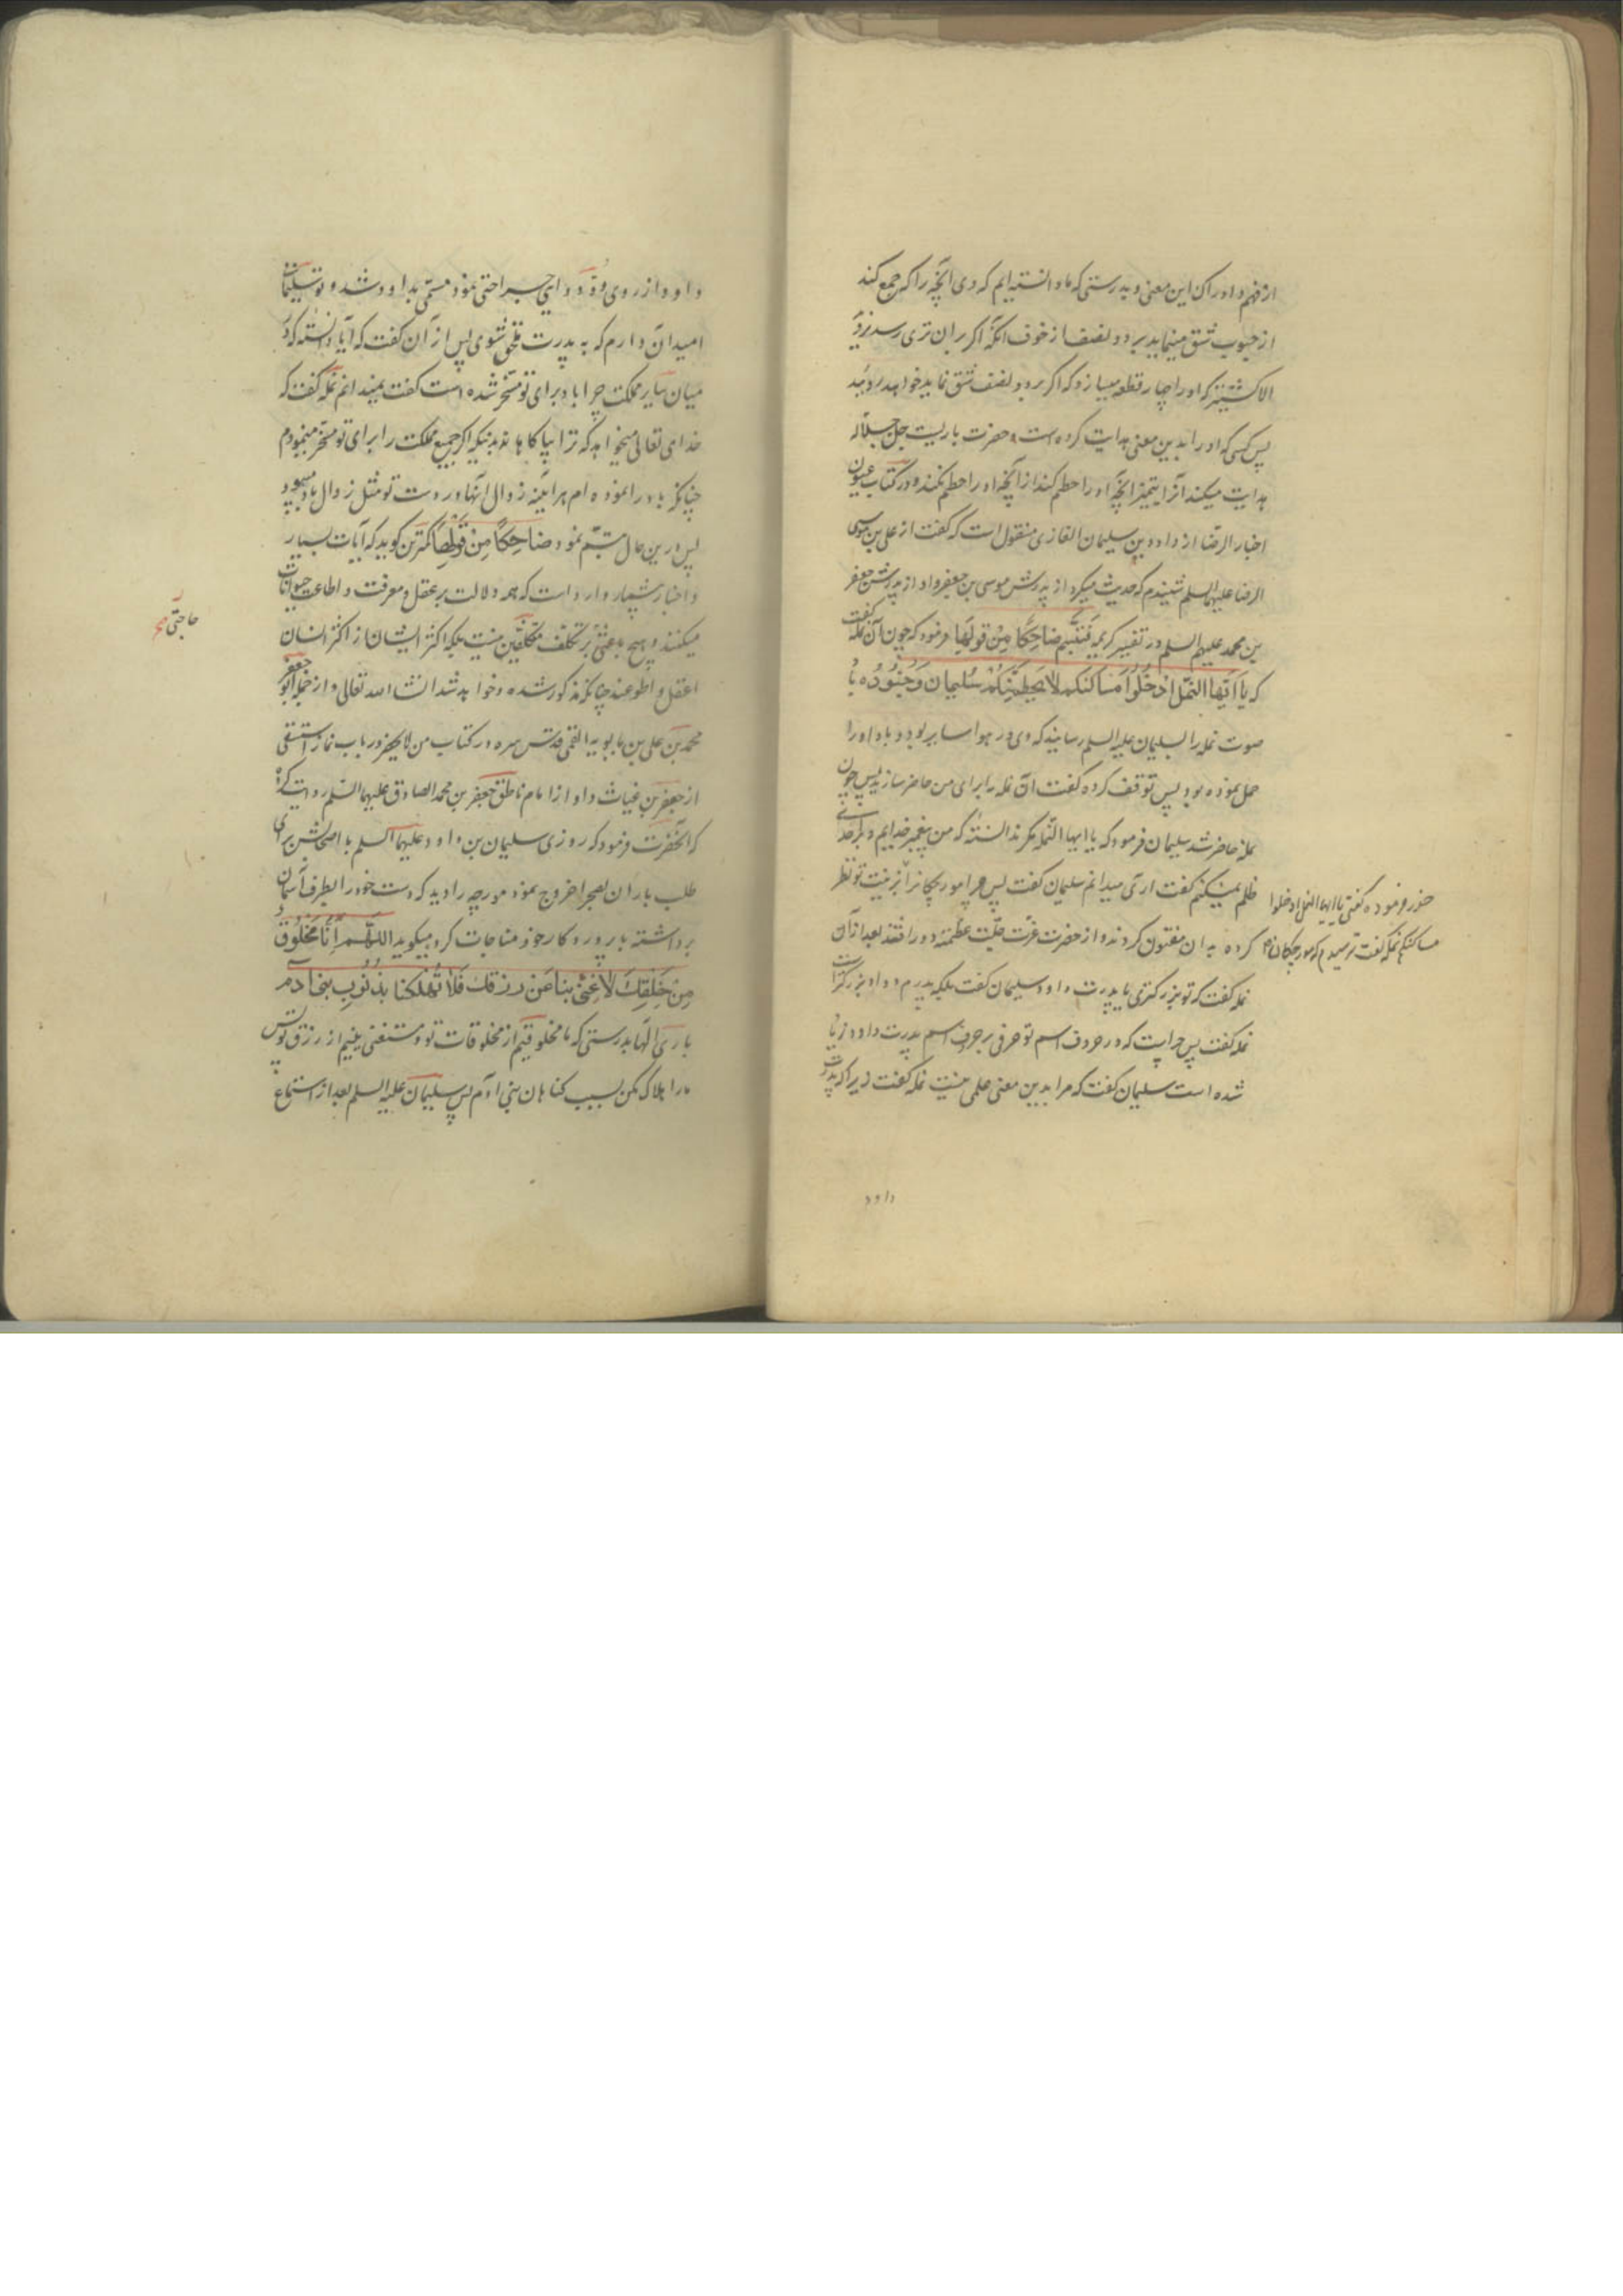 از فهم و ادراک این معنی و بدرستی که ما دانسته ایم که وی آنچه را که جمع کند
از حبوب شق مینماید بر دو نصف از خوف آنکه اگر بر آن تری رسد نروید
الا کشنیز که او را چهار قطعه میسازد که اگر بر دو نصف شق نماید خواهد روئید
پس کسی که او را بدین معنی هدایت کرده است و حضرت باریست جل جلاله
هدایت میکند آنرا بتمیز آنچه او را حطم کند از آنچه او را حطم نکند و در کتاب عیون
اخبار الرضا از داود بن سلیمان الغازی منقول است که گفت از علی بن موسی
الرضا علیهما السلم شنیدم که حدیث میکرد از پدرش موسی بن جعفر و او از پدرش جعفر
بن محمد علیهم السلم در تفسیر کریمه فَتَبَسَّمَ ضاحِكًا مِنْ قولِهَا فرمود که چون آن نمله گفت
که یا اَیّها النَّمل ادْخُلُوا مَسَاکنکم لَا یَحطِمَنَّکُمْ سُلیمان وَجُنُودُه باد
صوت نمله را بسلیمان علیه السلم رسانید که وی در هوا سایر بود و باد او را
حمل نموده بود پس توقف کرده گفت آن نمله را برای من حاضر سازید پس چون
نمله حاضر شد سلیمان فرمود که یا ایها النمله مگر ندانسته که من پیغمبر خدایم و بر احدی
ظلم نمیکنم گفت آری میدانم سلیمان گفت پس چرا مورچگانرا
حذر فرموده گفتی یا ایها النمل ادخلوا
مساکنکم نمله گفت ترسیدم که مورچگان
کرده به آن مفتون گردند و از حضرت عزت جلّت عظمته دور افتند بعد از آن
نمله گفت که تو بزرگتری یا پدرت داود سلیمان گفت بلکه پدرم داود بزرگتر است
نمله گفت پس چراست که در حروف اسم تو حرفی بر حروف اسم پدرت داود زیاد
شده است سلیمان گفت که مرا بدین معنی علمی نیست نمله گفت زیرا که پدرت
داود
داود از روی ودّ دوای جراحتی نمود مسمّی بداود شد و تو سلیمان
امید آن دارم که به پدرت ملحق شوی پس از آن گفت که آیا دانسته که از
میان سایر مملکت چرا باد برای تو مسخّر شده است گفت نمیدانم نمله گفت که
خدای تعالی میخواهد که ترا بیاگاهاند بدینکه اگر جمیع مملکت را برای تو مسخّر مینمودم
چنانکه باد را نموده ام هرآینه زوال آنها در دست تو مثل زوال باد میبود
پس در این حال تبسّم نمود ضاحِکاً مِنْ قَوْلِهَا کمترین گوید که آیات بسیار
و اخبار بیشمار وارد است که همه دلالت بر عقل و معرفت و اطاعت حیوانات
میکنند و هیچ باعثی بر تکلف مکلفین نیست بلکه اکثر ایشان از اکثر انسان
حاجتی
اعقل و اطوعند چنانکه مذکور شده و خواهد شد انشاء الله تعالی و از جمله ابو جعفر
محمد بن علی بن بابویه القمی قدس سره در کتاب من لا یحضر در باب نماز استسقی
از جعفر بن غیاث و او از امام ناطق جعفر بن محمد الصادق علیهما السلم روایت کرده
که آنحضرت فرمود که روزی سلیمان بن داود علیهما السلم با اصحابش برای
طلب باران بصحرا خروج نمود مورچه را دید که دست خود را بطرف آسمان
برداشته با پروردگار خود مناجات کرد میگوید اللّهُمَّ اِنَّا مَخْلُوق
مِنْ خَلقِكَ لا غِنیٰ بنا عَن رزقك فَلا تُهلکنا بذُنُوبِ بنی آدم
بار الها بدرستی که ما مخلوقیم از مخلوقات تو و مستغنی نئیم از رزق تو پس
ما را هلاک مکن بسبب گناهان بنی آدم پس سلیمان علیه السلم بعد از استماع